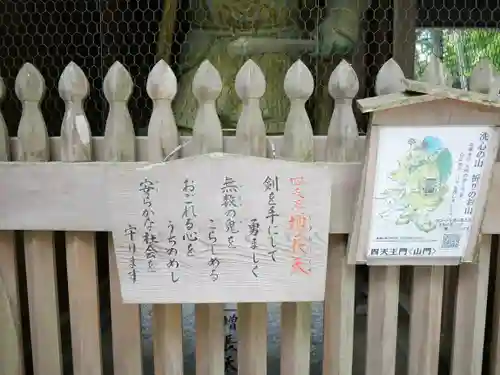 四天王 増長天
剣を手にして
勇ましく
無数の鬼を
こらしめ
おごれる心を
うちめめし
安らかな社会を
守ります
洗心の山 祈りのお山
四天王門〈山門〉
増長天